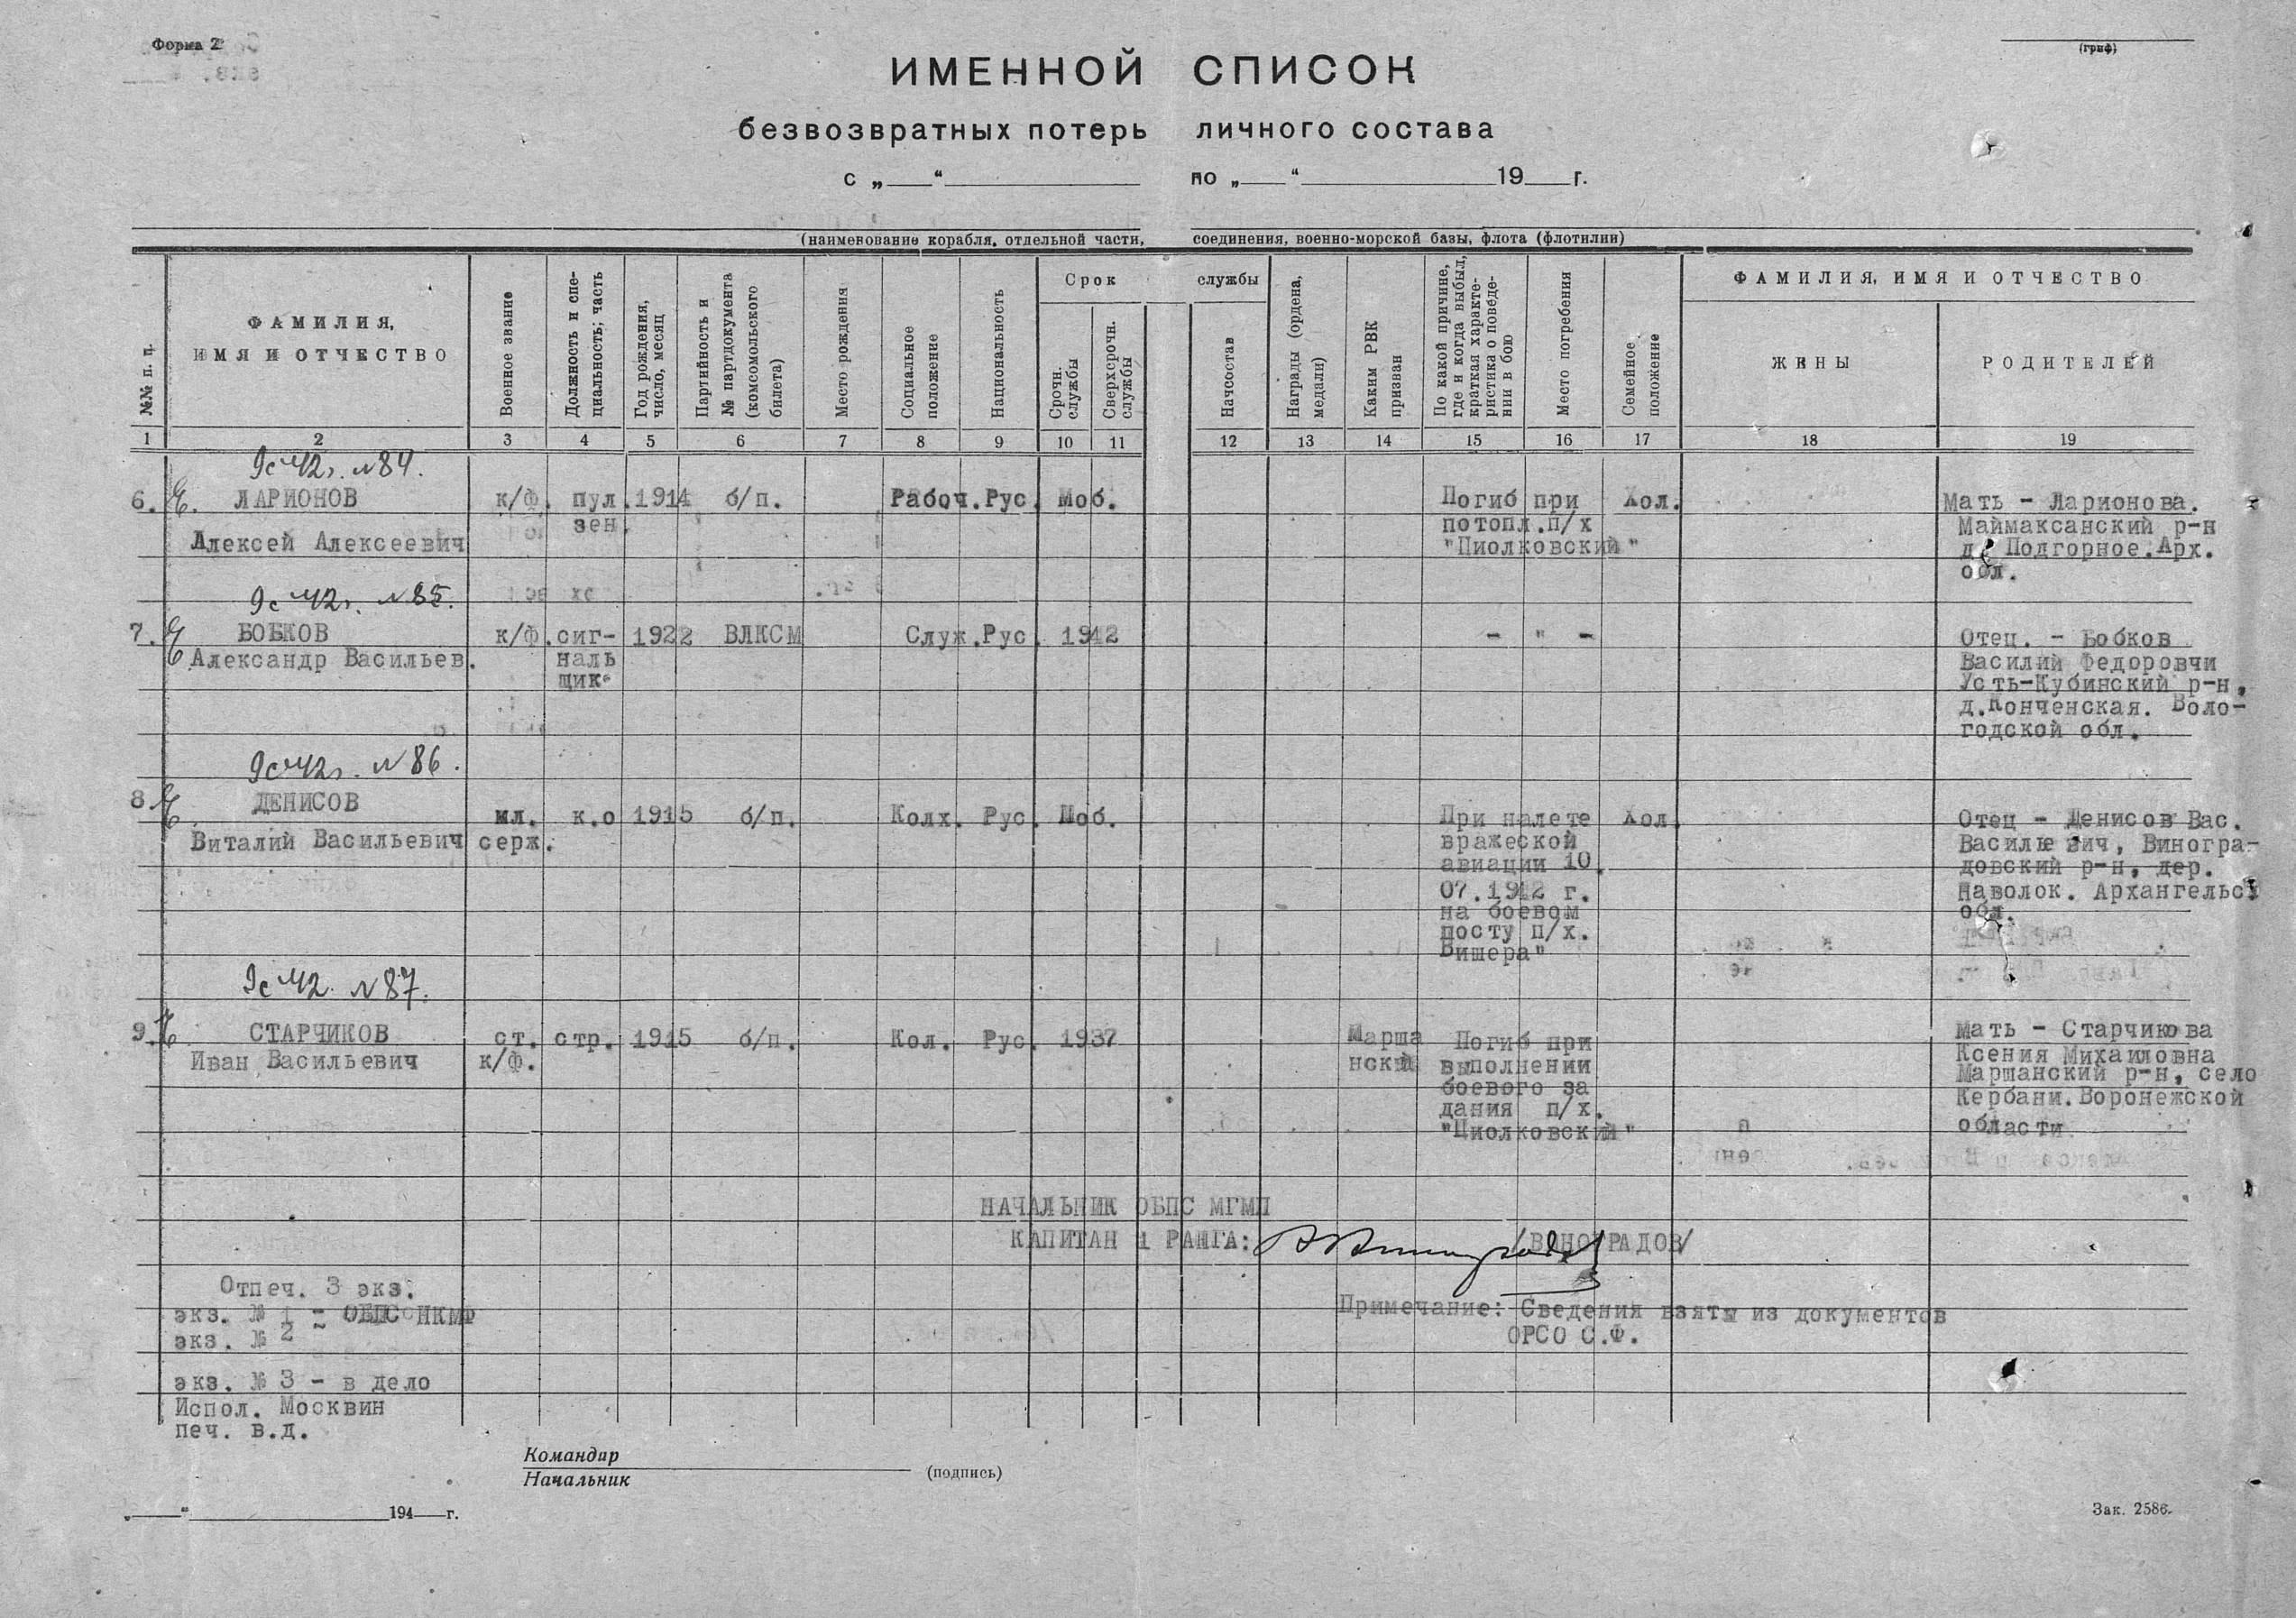 Форма 2
(гриф)
ИМЕННОЙ СПИСОК
безвозвратных потерь личного состава
с „ “ по „ “ 19 г.
(наименование корабля, отдельной части, соединения, военно-морской базы, флота (флотилии)
№№ п. п.
ФАМИЛИЯ,
ИМЯ И ОТЧЕСТВО
Военное звание
Должность и спе-
циальность; часть
Год рождения,
число, месяц
Партийность и
№ партдокумента
(комсомольского
билета)
Место рождения
Социальное
положение
Национальность
Срок службы
Срочн.
службы
Сверхсрочн.
службы
Начсостав
Награды (ордена,
медали)
Каким РВК
призван
По какой причине,
где и когда выбыл,
краткая характе-
ристика о поведе-
нии в бою
Место погребения
Семейное
положение
ФАМИЛИЯ, ИМЯ И ОТЧЕСТВО
ЖЕНЫ
РОДИТЕЛЕЙ
1 2 3 4 5 6 7 8 9 10 11 12 13 14 15 16 17 18 19
№84.
6. ЛАРИОНОВ
Алексей Алексеевич
к/ф.
пул.
зен.
1914
б/п.
Рабоч.
Рус.
Моб.
Погиб при
потопл.п/х
"Циолковский"
Хол.
Мать - Ларионова.
Маймаксанский р-н
д. Подгорное.Арх.
обл.
№85.
7. БОБКОВ
Александр Васильев.
к/ф.
сиг-
наль
щик.
1922
ВЛКСМ
Служ.
Рус.
1942
- " -
Отец. - Бобков
Василий Федоровчи
Усть-Кубинский р-н,
д.Конченская. Воло-
годской обл.
№86.
8. ДЕНИСОВ
Виталий Васильевич
мл.
серж.
к.о
1915
б/п.
Колх.
Рус.
Моб.
При налете
вражеской
авиации 10.
07.1942 г.
на боевом
посту п/х.
Вишера"
Хол.
Отец - Денисов Вас.
Василье вич, Виногра-
довский р-н, дер.
Наволок. Архангельск
обл.
№87.
9. СТАРЧИКОВ
Иван Васильевич
ст.
к/ф.
стр.
1915
б/п.
Кол.
Рус.
1937
Марша
нский
Погиб при
выполнении
боевого за
дания п/х.
"Циолковский"
Мать - Старчикова
Ксения Михаиловна
Маршанский р-н, село
Кербани.Воронежской
области
НАЧАЛЬНИК ОБПС МГМП
КАПИТАН 1 РАНГА: /ВИНОГРАДОВ/
Отпеч. 3 экз.
экз. № 1 - ОБПС НКМФ
экз. № 2 -
экз. № 3 - в дело
Испол. Москвин
печ. в.д.
Примечание: Сведения взяты из документов
ОРСО С.Ф.
Командир
Начальник
(подпись)
„ “ 194 г.
Зак. 2586.